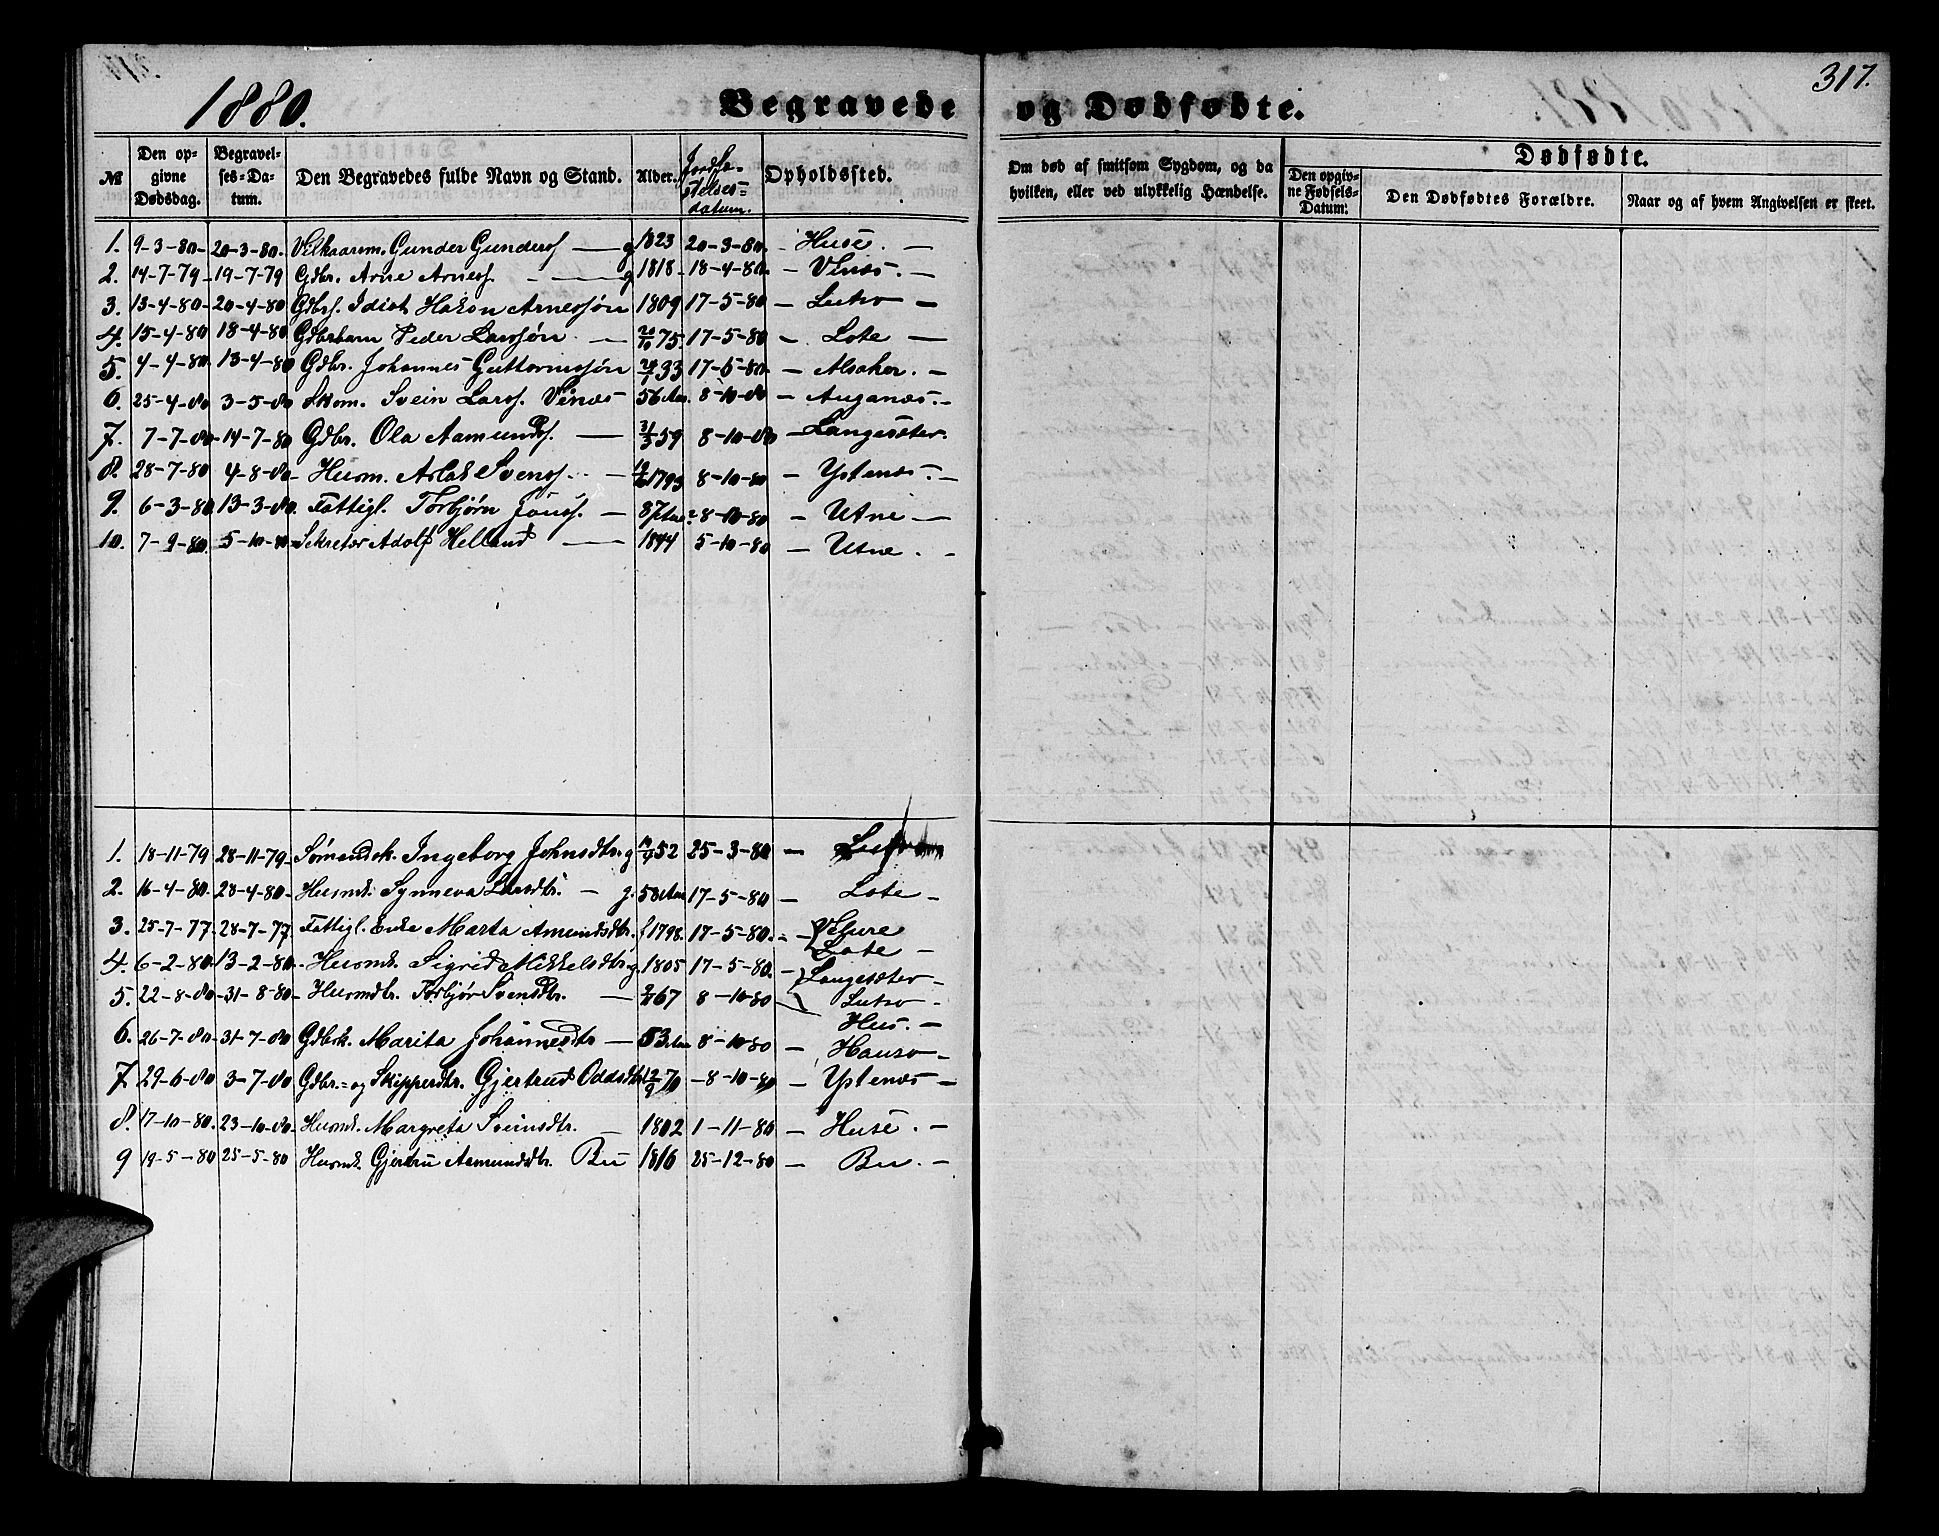 1880.
Begravede og Dødfødte.
317.
№
Den opgivne Dødsdag.
Begravelses-Datum.
Den Begravedes fulde Navn og Stand.
Alder.
Jordfæstelsesdatum.
Opholdssted.
Om død af smitsom Sygdom, og da hvilken, eller ved ulykkelig Hændelse.
Dødfødte.
Den opgivne Fødsels-Datum.
Den Dødfødtes Forældre.
Naar og af hvem Angivelsen er skeet.
1. 9-3-80 20-3-80. Vilkaarsm. Gunder Gunders. — g 1823 20-3-80. — Huse. —
2. 14-7-79 19-7-79 Gdbr. Arne Arnes. — g 1818 18-4-80 — Vines. —
3. 13-4-80 20-4-80 Gdbrs. Idiot Hakon Arnessøn 1809 17-5-80 — Lutro —
4. 15-4-80 18-4-80 Gdbrbarn Peder Larssøn. — 20/10 75 17-5-80 — Lote —
5. 4-4-80 13-4-80 Gdbr. Johannes Guttormssøn 33 17-5-80 — Alsaker. —
6. 25-4-80 3-5-80 Skom. Svein Larss. Vines 56 Aar. 8-10-80 — Auganæs. —
7. 7-7-80 14-7-80 Gdbr. Ola Aamunds. — 31/3 59 8-10-80 — Langesæter.
8. 28-7-80 4-8-80 Husm. Aslak Svens. — 1793 8-10-80 — Ystenæs. —
9. 6-3-80 13-3-80 Fattigl. Torbjørn Jons. — 87 Aar 8-10-80 — Utne —
10. 7-9-80 5-10-80 Sekretær Adolf Helland — 1844 5-10-80 — Utne. —
1. 18-11-79 28-11-79 Sømandsk. Ingeborg Johnsdtr. g 52 25-3-80 —
2. 16-4-80 28-4-80 Husmk. Synneva Larsdtr. — g. 58 Aar 17-5-80 — Lote —
3. 25-7-77 28-7-77 Fattigl. Enke Marta Amundsdtr. f 1798. 17-5-80. — Vilure Lote —
4. 6-2-80 13-2-80 Husmk. Sigrid Mikkelsdtr. g. 1805 17-5-80. — Langesæter —
5. 22-8-80 31-8-80 Husmdtr. Torbjør Svensdtr. — 67 8-10-80 Lutro — Hus. —
6. 26-7-80 31-7-80 Gdbrk. Marita Johannesdtr — 53 Aar 8-10-80 — Hauso —
7. 29-6-80 3-7-80 Gdbr.- og Skipperdtr. Gjertrud Oddsdtr 12/9 70 8-10-80 — Ystenæs —
8. 17-10-80. 23-10-80 Husmk. Margreta Sveinsdtr. — 1802 1-11-80 — Huse. —
9 19-5-80 25-5-80 Husmk. Gjertru Asmundsdtr. Bu 1816 25-12-80 — Bu. —